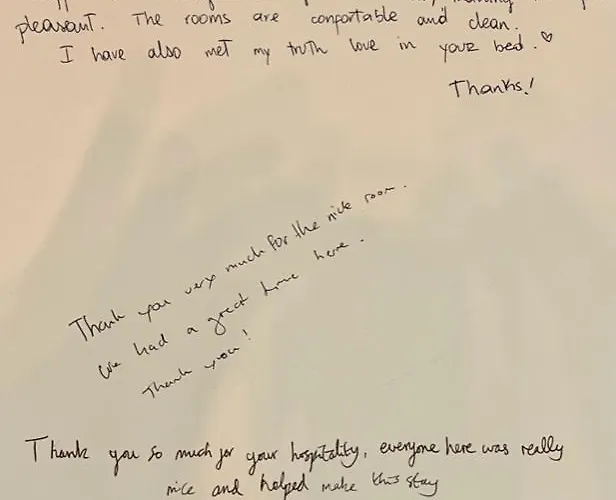 pleasant. The rooms are confortable and clean.
I have also met my truth love in your bed. ♡
Thanks!
Thank you very much for the nice room.
We had a great time here.
Thank you!
Thank you so much for your hospitality, everyone here was really
nice and helped make this stay